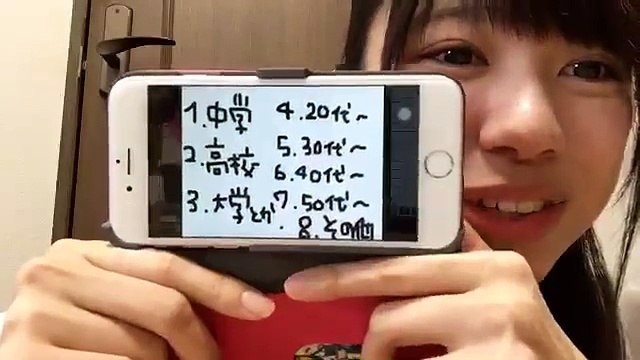 1.中学
2.高校
3.大学とか
4.20代~
5.30代~
6.40代~
7.50代~
8.その他